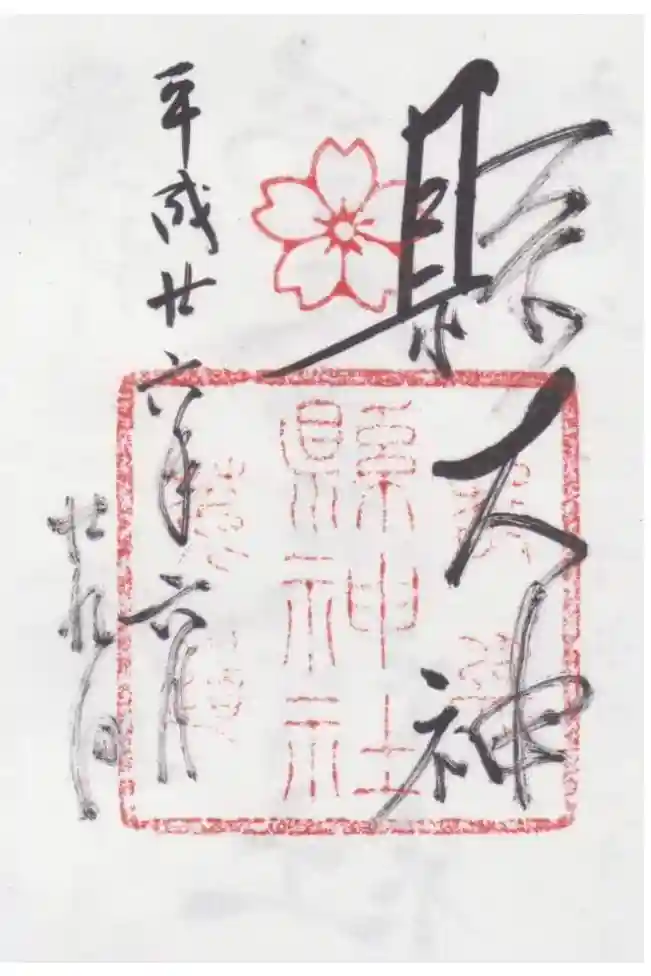 縣大神
縣神社
平成廿六年六月
廿九日